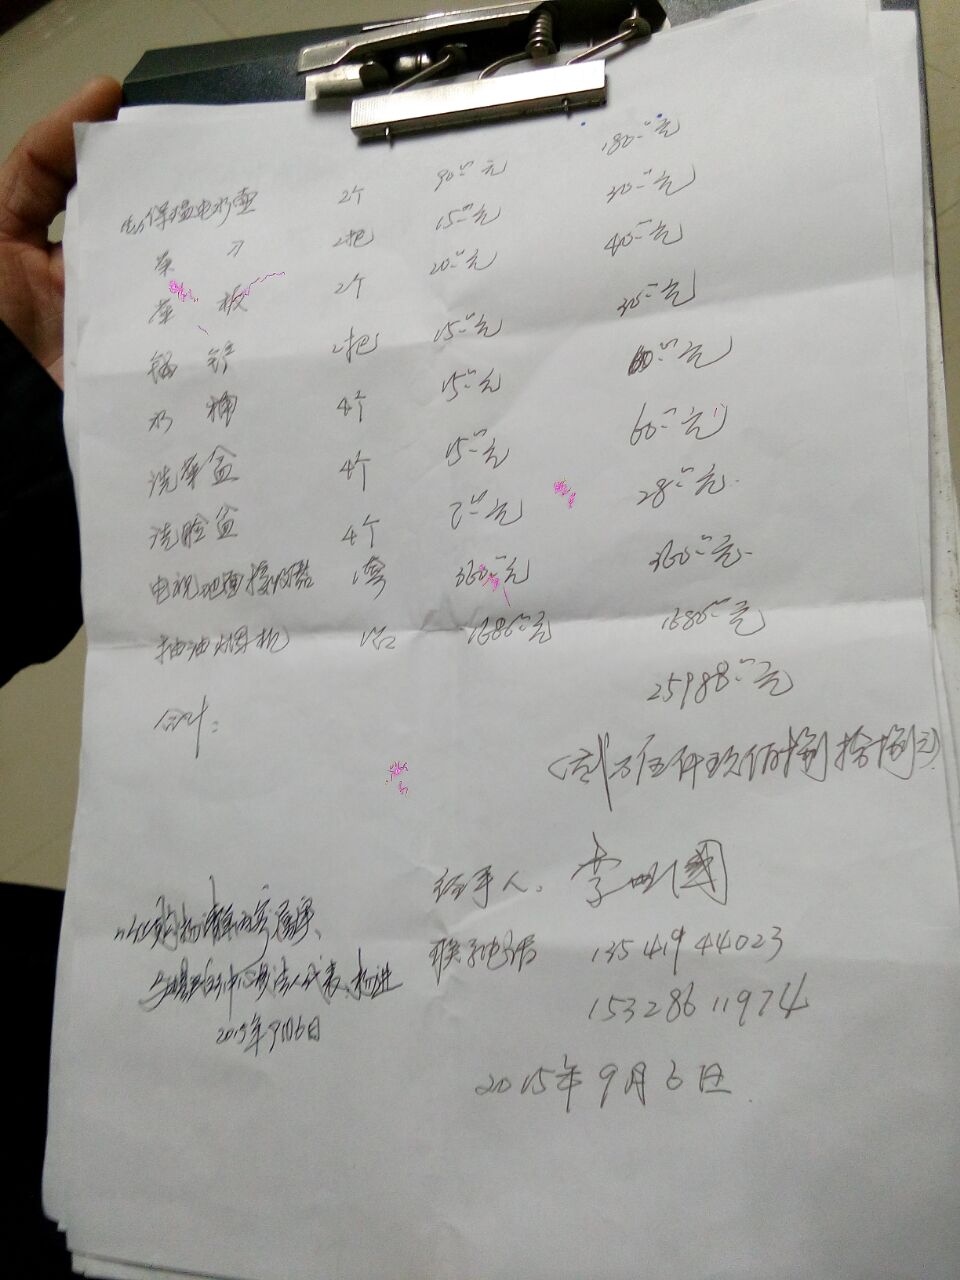 保温电水壶 2个 90.00元 180.00元
菜刀 2把 15.00元 30.00元
菜板 2个 20.00元 40.00元
锅铲 2把 15.00元 30.00元
水桶 4个 15.00元 60.00元
洗菜盆 4个 15.00元 60.00元
洗脸盆 4个 7.00元 28.00元
电视地面接收器 1套 360.00元 360.00元
抽油烟机 1台 1686.00元 1686.00元
合计: 25988.00元
(贰万伍仟玖佰捌拾捌元)
经手人: 李 国
联系电话 13541944023
15328611974
2015年9月6日
以上购物清单 属实、
法人代表、
2015年9月6日